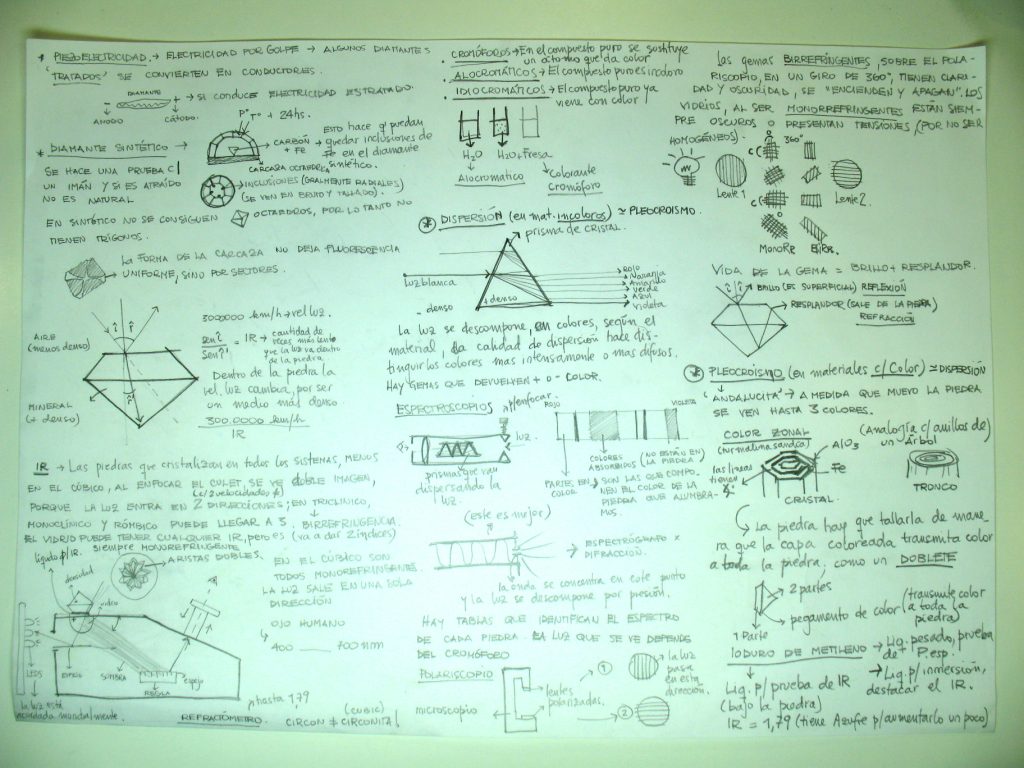 * PIEZOELECTRICIDAD. → ELECTRICIDAD POR GOLPE → ALGUNOS DIAMANTES
'TRATADOS' SE CONVIERTEN EN CONDUCTORES.
DIAMANTE
- + → SI CONDUCE ELECTRICIDAD ES TRATADO.
ANODO CÁTODO.
* DIAMANTE SINTÉTICO →
P° T° + 24hs.
CARBÓN + Fe
CARCAZA OCTAEDRICA
ESTO hace q' puedan
quedar inclusiones de
Fe en el diamante
sintético.
SE HACE UNA PRUEBA C/
UN IMÁN Y SI ES ATRAÍDO
NO ES NATURAL
INCLUSIONES (GRALMENTE RADIALES)
(SE VEN EN BRUTO Y TALLADO).
EN SINTÉTICO NO SE CONSIGUEN
OCTAEDROS, POR LO TANTO NO
TIENEN TRÍGONOS.
LA FORMA DE LA CARCAZA NO DEJA FLUORESCENCIA
UNIFORME, SINO POR SECTORES.
AIRE
(menos denso)
MINERAL
(+ denso)
î r̂
300.000 km/h → vel luz.
sen î
sen r̂ = IR → cantidad de
veces más lento
que la luz va dentro
de la piedra.
Dentro de la piedra la
vel. luz cambia, por ser
un medio más denso
300.000 km/h
IR
IR → Las piedras que cristalizan en todos los sistemas, MENOS
EN EL CÚBICO, AL ENFOCAR EL CULET, SE VE DOBLE IMAGEN,
(c/2 velocidades ≠)
PORQUE LA LUZ ENTRA EN 2 DIRECCIONES; EN TRICLÍNICO,
MONOCLÍNICO Y RÓMBICO PUEDE LLEGAR A 3. BIRREFRINGENCIA.
EL VIDRIO PUEDE TENER CUALQUIER IR, pero es siempre MONOREFRINGENTE (va a dar 2 índices)
ARISTAS DOBLES.
líquido p/IR.
densidad
vidrio
EN EL CÚBICO SON
TODOS MONOREFRINGENTES
LA LUZ SALE EN UNA SOLA
DIRECCIÓN
OJO HUMANO
400 — 700 nm
LEDS
SOMBRA
REGLA
espejo
la luz está
acordada mundialmente.
REFRACTÓMETRO.
hasta 1,79
(CUBIC)
CIRCON ≠ CIRCONITA!
. CROMÓFOROS → En el compuesto puro se sustituye
un átomo que da color
. ALOCROMÁTICOS → El compuesto puro es incoloro
. IDIOCROMÁTICOS → El compuesto puro ya
viene con color
H₂O H₂O+Fresa
Alocromatico
Colorante
Cromóforo
* DISPERSIÓN (en mat. incoloros) ≃ PLEOCROISMO.
prisma de CRISTAL.
luz blanca
- denso
+ denso
ROJO
Naranja
Amarillo
Verde
AZUL
Violeta
La luz se descompone, en colores, según el
material, la calidad de dispersión hace dis-
tinguir los colores mas intensamente o mas difusos.
HAY GEMAS QUE DEVUELVEN + O - COLOR.
ESPECTROSCOPIOS p/enfocar.
luz.
prismas que van
dispersando la
luz.
ROJO VIOLETA
COLORES
ABSORBIDOS (NO ESTÁN EN
LA PIEDRA)
PARTES EN
COLOR → SON LAS QUE COMPO-
NEN EL COLOR DE LA
PIEDRA QUE ALUMBRA-
MOS.
(este es mejor)
→ ESPECTRÓGRAFO X
DIFRACCIÓN.
la onda se concentra en este punto
y la luz se descompone por presión.
HAY TABLAS QUE IDENTIFICAN EL ESPECTRO
DE CADA PIEDRA. LA LUZ QUE SE VE DEPENDE
DEL CROMÓFORO
POLARISCOPIO
microscopio
lentes
polarizadas.
1
2
la luz
pasa
en esta
dirección.
Las gemas BIRREFRINGENTES, SOBRE EL POLA-
RISCOPIO, EN UN GIRO DE 360°, TIENEN CLARI-
DAD Y OSCURIDAD, SE "ENCIENDEN Y APAGAN". LOS
VIDRIOS, AL SER MONORREFRINGENTES ESTÁN SIEM-
PRE OSCUROS O PRESENTAN TENSIONES (POR NO SER
HOMOGÉNEOS).
360°
Lente 1
Lente 2.
MONORR BIRR.
VIDA DE LA GEMA = BRILLO + RESPLANDOR.
BRILLO (ES SUPERFICIAL) REFLEXIÓN
RESPLANDOR (SALE DE LA PIEDRA)
REFRACCIÓN
* PLEOCROISMO (en materiales c/ Color) ≃ DISPERSIÓN
'ANDALUCITA' → A MEDIDA QUE MUEVO LA PIEDRA
SE VEN HASTA 3 COLORES.
COLOR ZONAL
(turmalina sandía)
(Analogía c/anillos de)
un Árbol
AlO₃
Fe
las lineas
tienen
CRISTAL.
TRONCO
La piedra hay que tallarla de mane-
ra que la capa coloreada transmita color
a toda la piedra, como un DOBLETE
2 partes
pegamento de color (transmite color
a toda la
piedra)
1 Parte
IODURO DE METILENO → Liq. pesado, prueba
de P. esp.
→ Liq. p/ inmersión,
destacar el IR.
Liq. p/ prueba de IR
(bajo la piedra)
IR = 1,79 (tiene Azufre p/aumentarlo un poco)